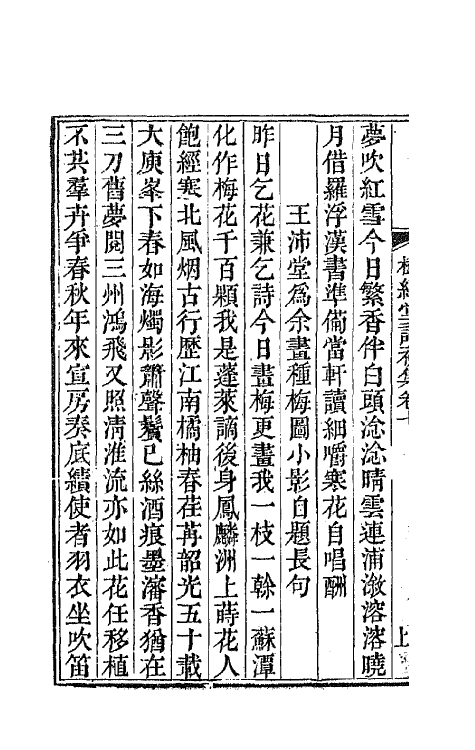 夢吹紅雪今日繁香伴白頭淰淰晴雲連浦潋溶溶曉
月借羅浮漢書準備當軒讀細嚼寒花自唱酬
王沛堂爲余畫種梅圖小影自題長句
昨日乞花兼乞詩今日畫梅更畫我一枝一榦一蘇潭
化作梅花千百顆我是蓬萊謫後身鳳麟洲上蒔花人
飽經寒北風烟古行歷江南橘柚春荏苒韶光五十載
大庾峯下春如海燭影簫聲鬢已絲酒痕墨瀋香猶在
三刀舊夢閱三州鴻飛又照清淮流亦如此花任移植
不共羣卉爭春秋年來宣房奏底績使者羽衣坐吹笛